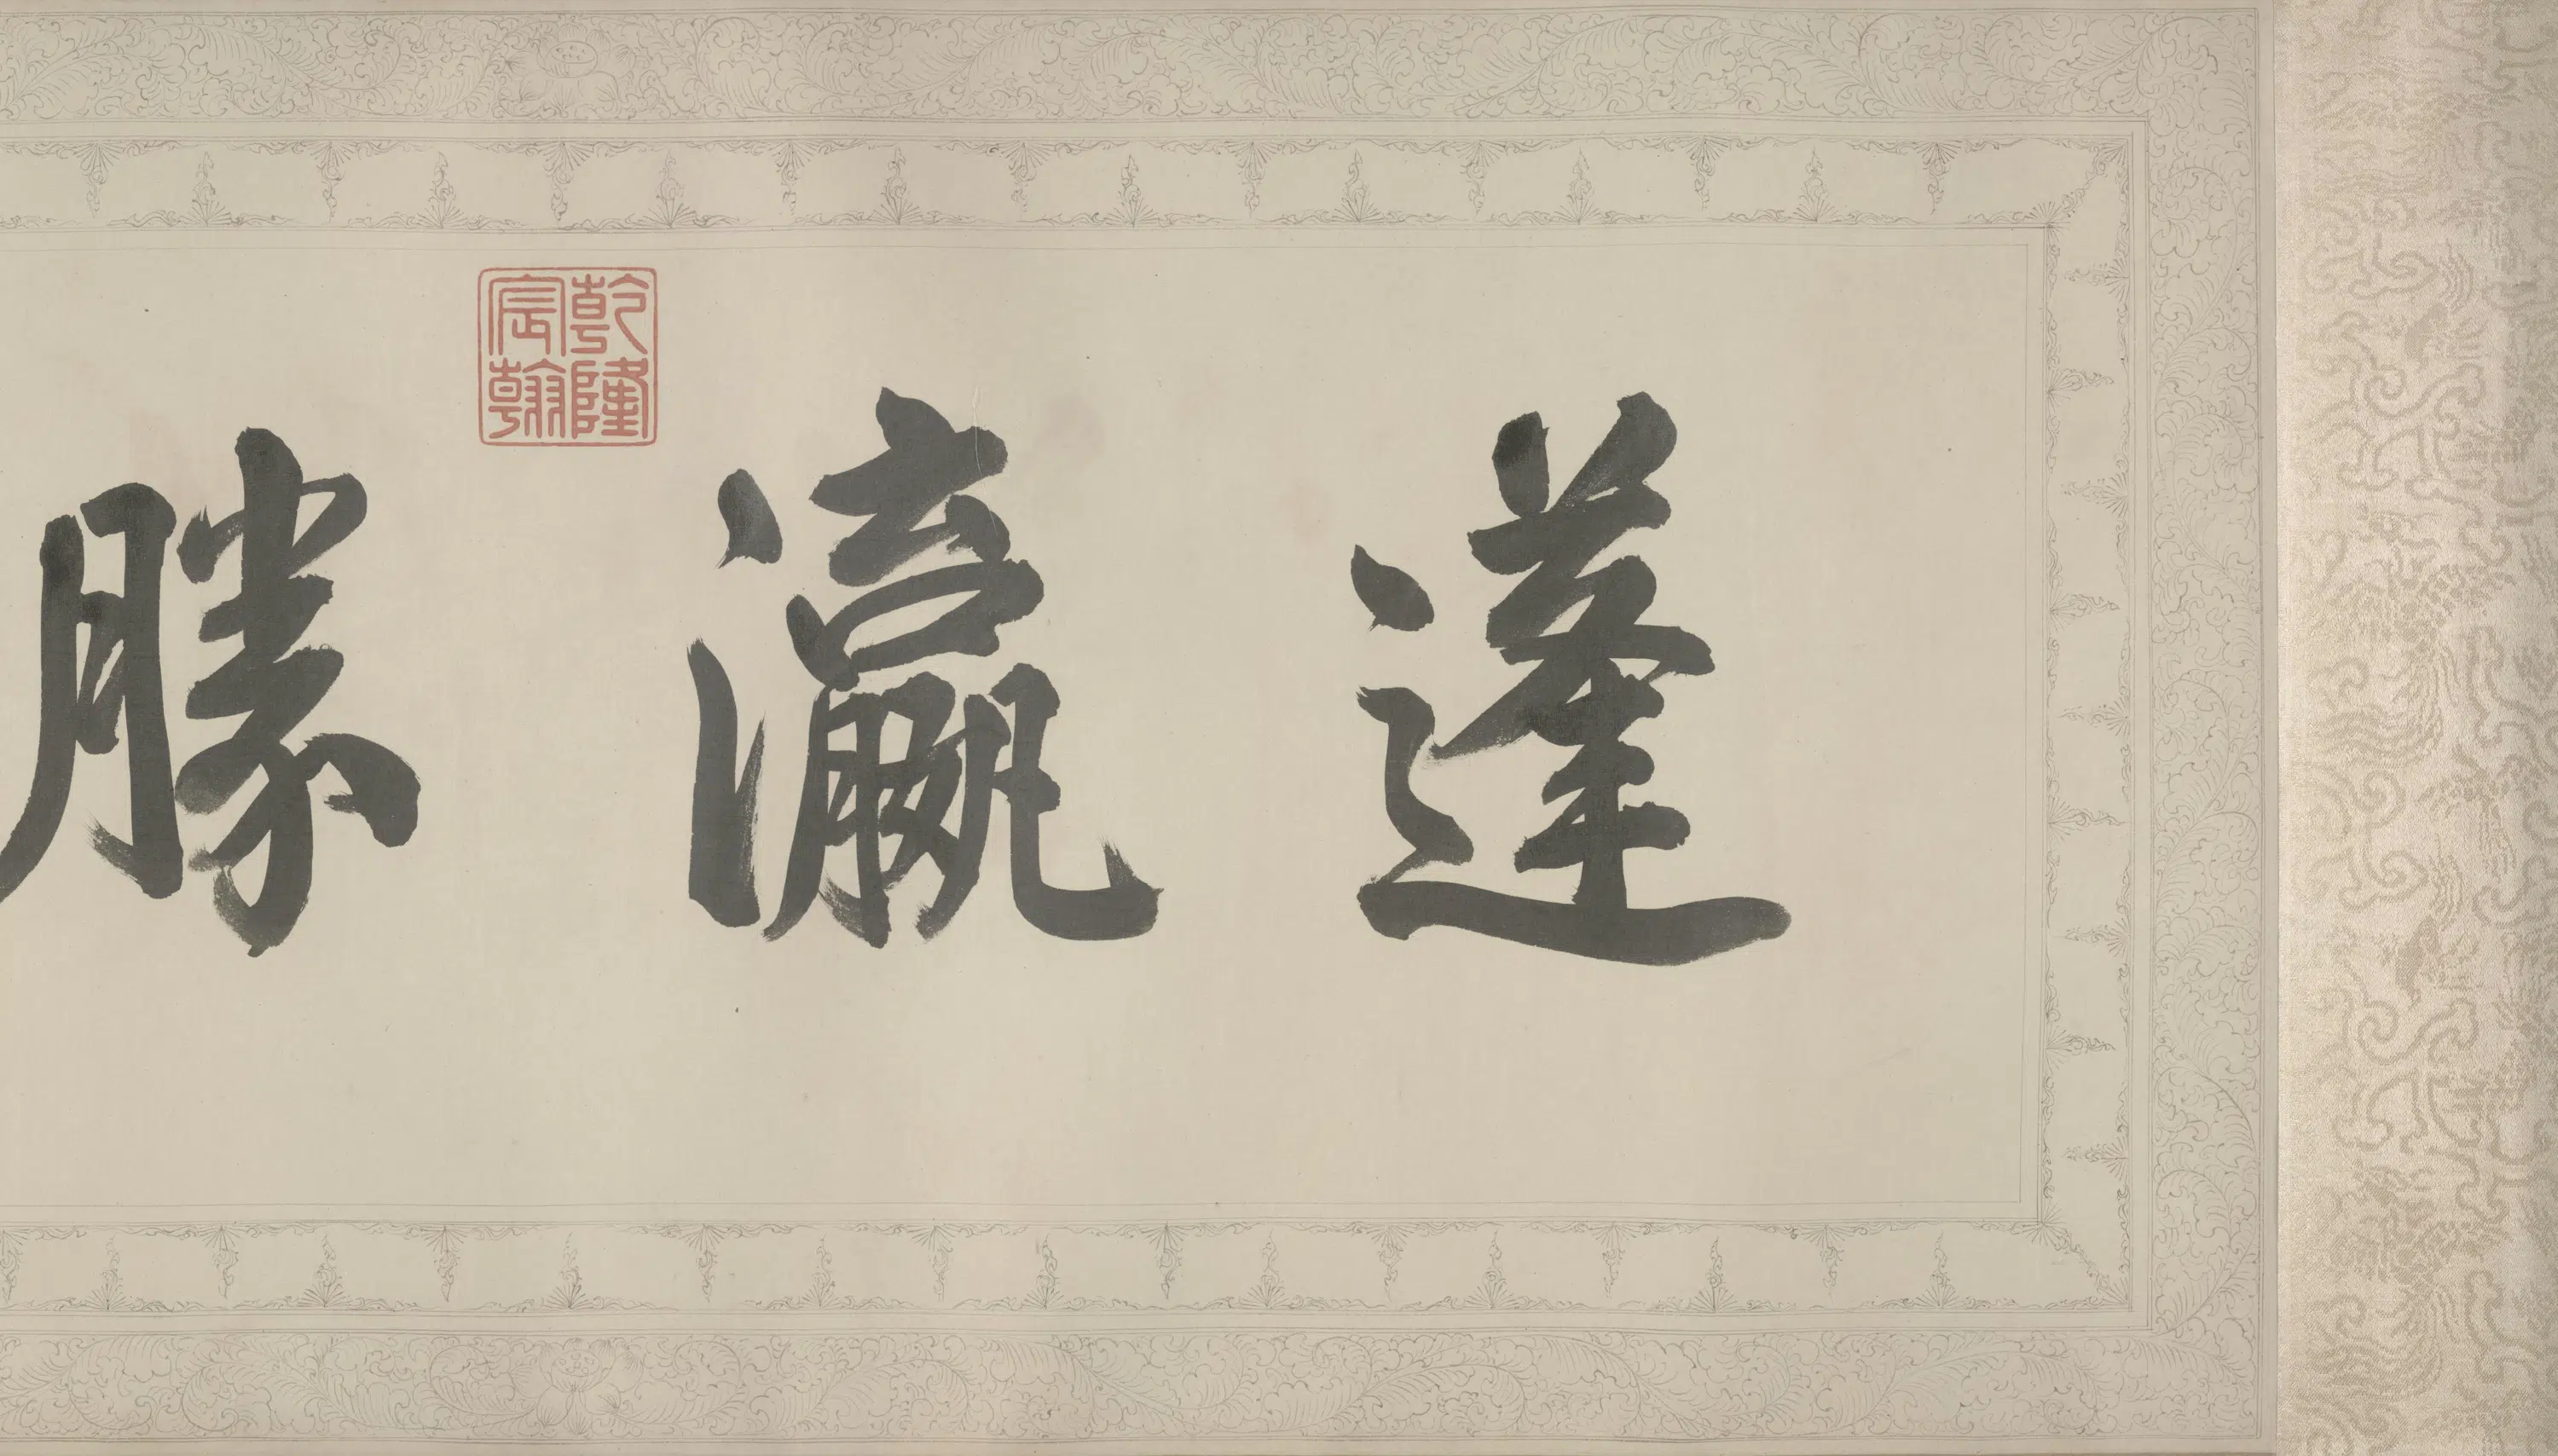 蓬瀛勝
乾隆
宸翰